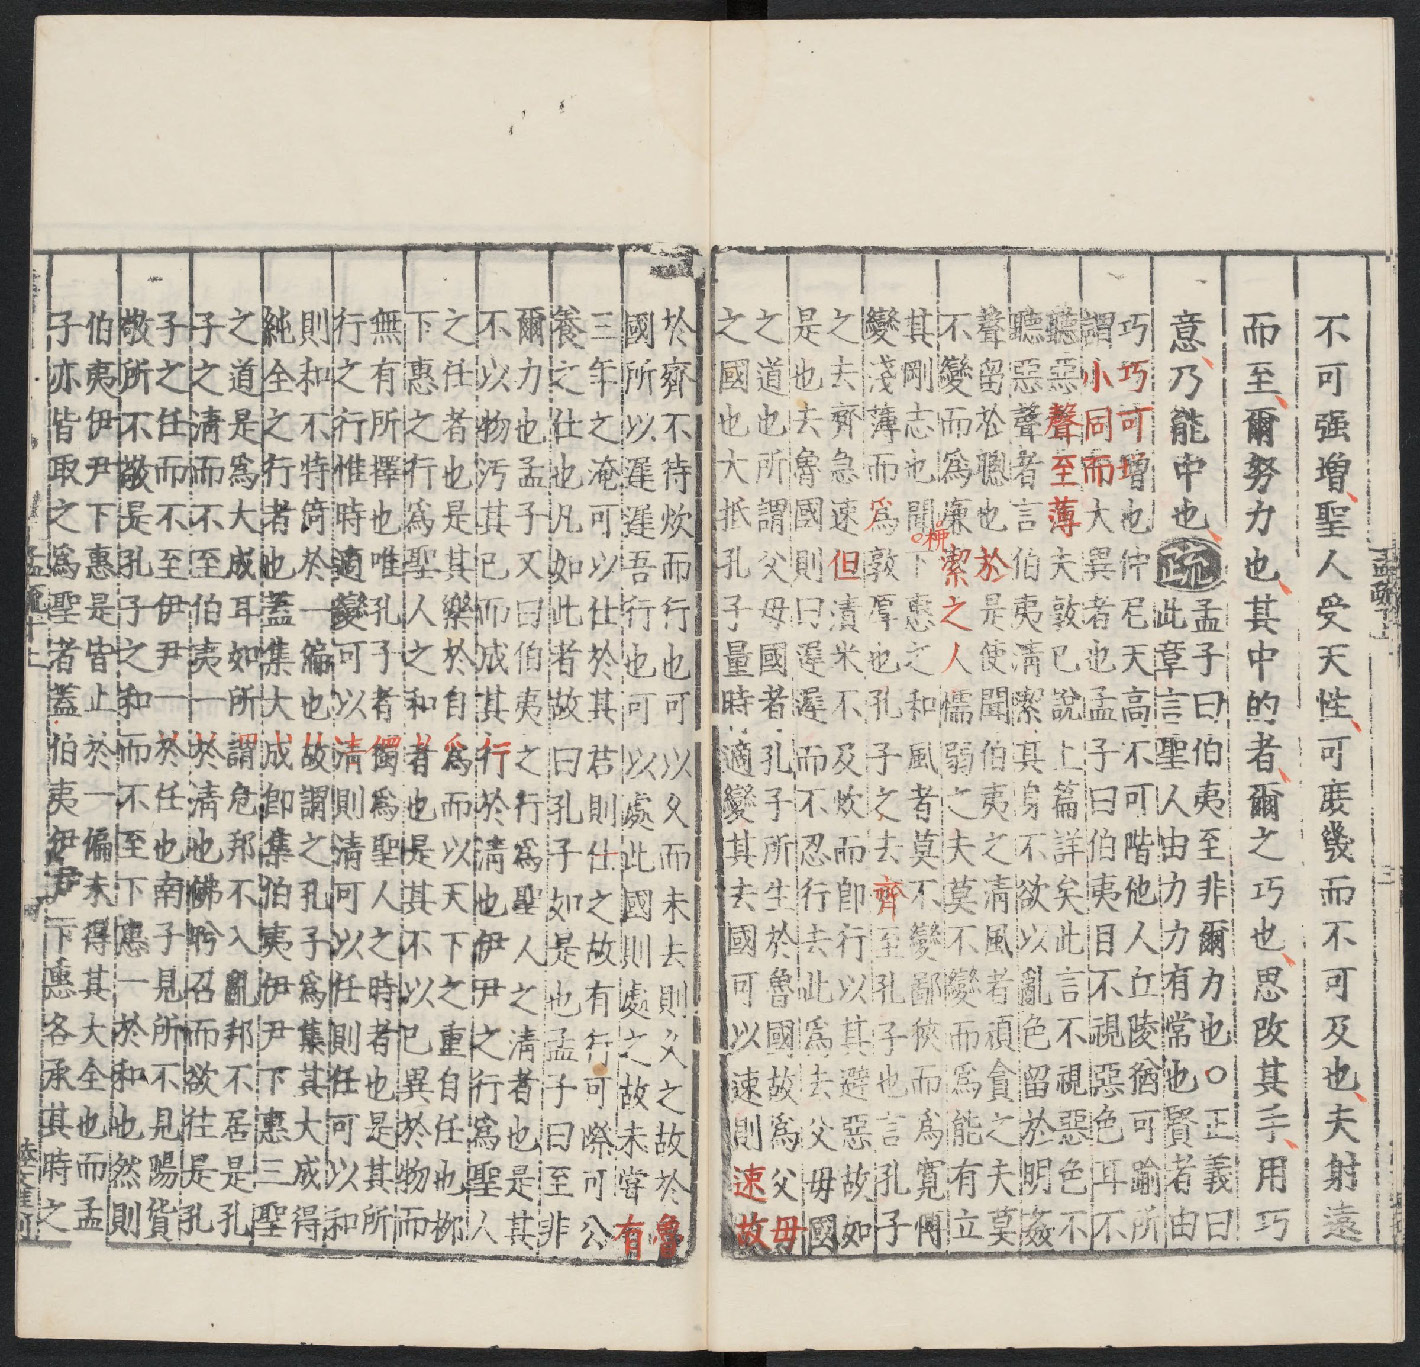 不可强增聖人受天性可庻幾而不可及也夫射遠
而至爾努力也其中的者爾之巧也思改其手用巧
意乃能中也疏孟子曰伯夷至非爾力也○正義曰
此章言聖人由力力有常也賢者由
巧巧可增也仲尼天高不可階他人丘陵猶可踰所
謂小同而大異者也孟子曰伯夷目不視惡色耳不
聽惡聲至薄夫敦已說上篇詳矣此言不視惡色不
聽惡聲者言伯夷清潔其身不欲以亂色留於明姦
聲留於聰也於是使聞伯夷之清風者頑貪之夫莫
不變而爲廉潔之人懦弱之夫莫不變而爲能有立
其剛志也聞柳下惠之和風者莫不變鄙狹而爲寛愽
變淺薄而爲敦厚也孔子之去齊至孔子也言孔子
之去齊急速但漬米不及炊而即行以其避惡故如
是也去魯國則曰遲遲而不忍行去此爲去父母國
之道也所謂父母國者孔子所生於魯國故爲父母
之國也大抵孔子量時適變其去國可以速則速故
於齊不待炊而行也可以久而未去則久之故於魯
國所以遲遲吾行也可以處此國則處之故未甞有
三年之淹可以仕於其君則仕之故有行可際可公
養之仕也凡如此者故曰孔子如是也孟子曰至非
爾力也孟子又曰伯夷之行爲聖人之清者也是其
不以物污其已而成其行於清也伊尹之行爲聖人
之任者也是其樂於自爲而以天下之重自任也栁
下惠之行爲聖人之和者也是其不以已異於物而
無有所擇也唯孔子者獨爲聖人之時者也是其所
行之行惟時適變可以清則清可以任則任可以和
則和不特倚於一偏也故謂之孔子爲集其大成得
純全之行者也蓋集大成卽集伯夷伊尹下惠三聖
之道是爲大成耳如所謂危邦不入亂邦不居是孔
子之清而不至伯夷一於清也佛肹召而欲往是孔
子之任而不至伊尹一於任也南子見所不見陽貨
敬所不敬是孔子之和而不至下惠一於和也然則
伯夷伊尹下惠是皆止於一偏未得其大全也而孟
子亦皆取之爲聖者蓋伯夷伊尹下惠各承其時之